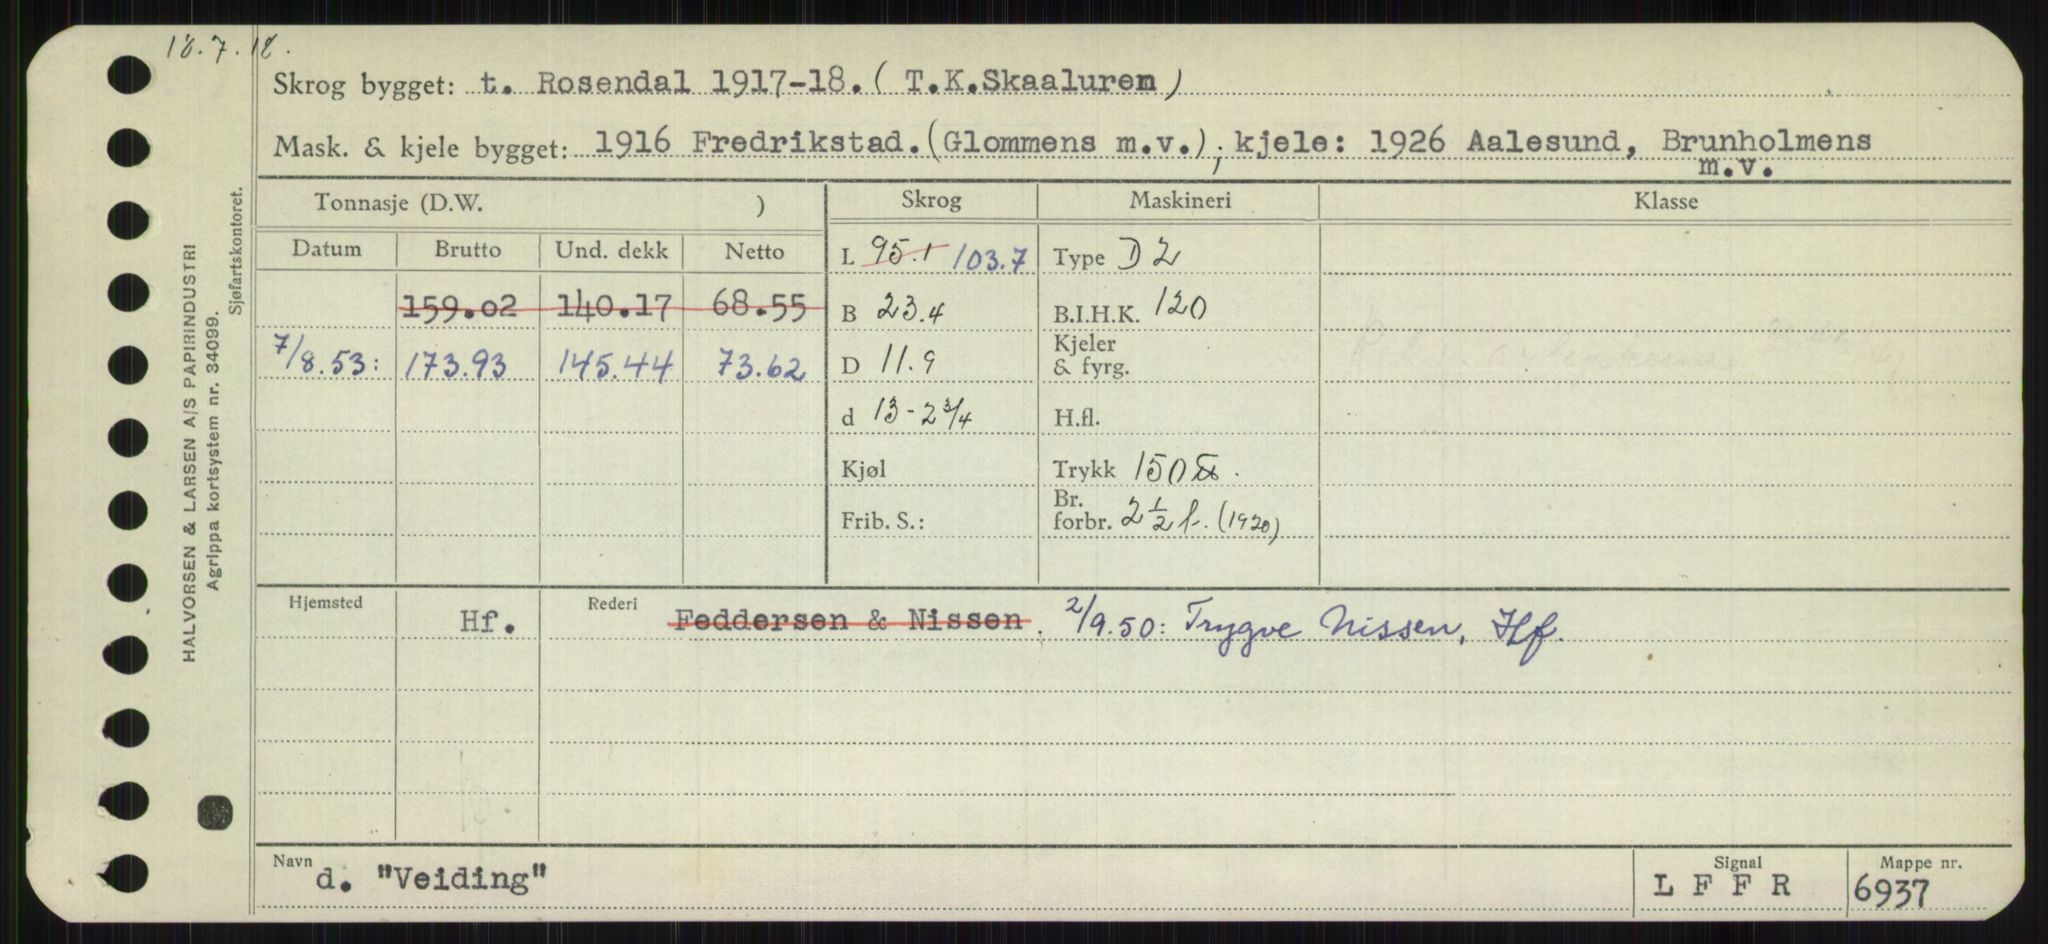 18.7.18.
Skrog bygget: t. Rosendal 1917-18. (T.K.Skaaluren)
Mask. & kjele bygget: 1916 Fredrikstad. (Glommens m.v.); kjele: 1926 Aalesund, Brunholmens
m.v.
Tonnasje (D.W. ) Skrog Maskineri Klasse
Datum Brutto Und. dekk Netto L 95.1 103.7 Type D 2
159.02 140.17 68.55 B 23.4 B.I.H.K. 120
7/8.53: 173.93 145.44 73.62 D 11.9 Kjeler
& fyrg.
d 13-2 3/4 H.fl.
Kjøl Trykk 150 ℔.
Frib. S.: Br.
forbr. 2 1/2 t. (1920)
Hjemsted Hf. Rederi Feddersen & Nissen. 2/9.50: Trygve Nissen, Hf.
Navn d. "Veiding" Signal LFFR Mappe nr. 6937
HALVORSEN & LARSEN A/S PAPIRINDUSTRI
Agrippa kortsystem nr. 34099.
Sjøfartskontoret.